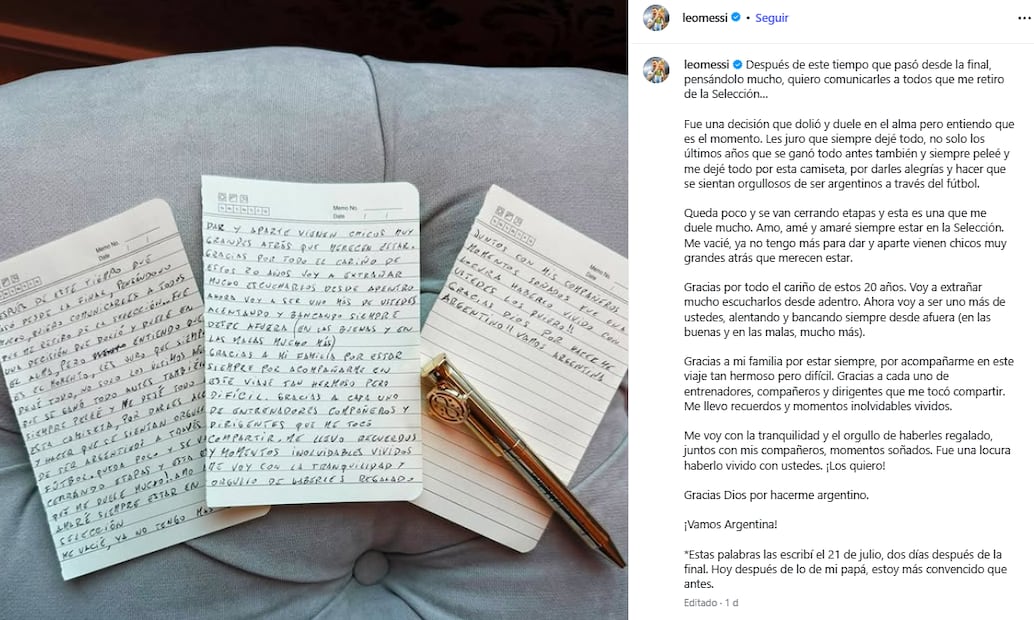 Memo No.
Date / /
DE ESTE TIEMPO QUE
PASÓ DESDE LA FINAL, PENSÁNDOLO
MUCHO, QUIERO COMUNICARLES A TODOS
QUE ME RETIRO DE LA SELECCIÓN... FUE
UNA DECISIÓN QUE DOLIÓ Y DUELE EN
EL ALMA, PERO ENTIENDO QUE
ES EL MOMENTO. LES JURO QUE SIEMPRE
DEJÉ TODO, NO SOLO LOS ULTIMOS AÑOS
QUE SE GANÓ TODO ANTES TAMBIÉN Y
SIEMPRE PELEÉ Y ME DEJÉ TODO
ESTA CAMISETA, POR DARLES
Y HACER QUE SE SIENTAN
DE SER ARGENTINOS A TRAVÉS
FÚTBOL. QUEDA POCO Y SE
CERRANDO ETAPAS Y ESTA
QUE ME DUELE MUCHO. AMO
AMARÉ SIEMPRE ESTAR EN
SELECCIÓN
ME VACIÉ, YA NO TENGO MÁS
Memo No.
Date / /
DAR Y APARTE VIENEN CHICOS MUY
GRANDES ATRÁS QUE MERECEN ESTAR.
GRACIAS POR TODO EL CARIÑO DE
ESTOS 20 AÑOS VOY A EXTRAÑAR
MUCHO ESCUCHARLOS DESDE ADENTRO
AHORA VOY A SER UNO MÁS DE USTEDES
ALENTANDO Y BANCANDO SIEMPRE
DESDE AFUERA (EN LAS BUENAS Y EN
LAS MALAS MUCHO MÁS)
GRACIAS A MI FAMILIA POR ESTAR
SIEMPRE POR ACOMPAÑARME EN
ESTE VIAJE TAN HERMOSO PERO
DIFÍCIL. GRACIAS A CADA UNO
DE ENTRENADORES COMPAÑEROS Y
DIRIGENTES QUE ME TOCÓ
COMPARTIR. ME LLEVO RECUERDOS
Y MOMENTOS INOLVIDABLES VIVIDOS
ME VOY CON LA TRANQUILIDAD Y
ORGULLO DE HABERLES REGALADO
Memo No.
Date / /
JUNTOS CON MIS COMPAÑEROS
MOMENTOS SOÑADOS. FUE UNA
LOCURA HABERLO VIVIDO CON
USTEDES LOS QUIERO!!
GRACIAS DIOS POR HACERME
ARGENTINO!! VAMOS ARGENTINA
leomessi • Seguir
leomessi Después de este tiempo que pasó desde la final,
pensándolo mucho, quiero comunicarles a todos que me retiro
de la Selección...
Fue una decisión que dolió y duele en el alma pero entiendo que
es el momento. Les juro que siempre dejé todo, no solo los
últimos años que se ganó todo antes también y siempre peleé y
me dejé todo por esta camiseta, por darles alegrías y hacer que
se sientan orgullosos de ser argentinos a través del fútbol.
Queda poco y se van cerrando etapas y esta es una que me
duele mucho. Amo, amé y amaré siempre estar en la Selección.
Me vacié, ya no tengo más para dar y aparte vienen chicos muy
grandes atrás que merecen estar.
Gracias por todo el cariño de estos 20 años. Voy a extrañar
mucho escucharlos desde adentro. Ahora voy a ser uno más de
ustedes, alentando y bancando siempre desde afuera (en las
buenas y en las malas, mucho más).
Gracias a mi familia por estar siempre, por acompañarme en este
viaje tan hermoso pero difícil. Gracias a cada uno de
entrenadores, compañeros y dirigentes que me tocó compartir.
Me llevo recuerdos y momentos inolvidables vividos.
Me voy con la tranquilidad y el orgullo de haberles regalado,
juntos con mis compañeros, momentos soñados. Fue una locura
haberlo vivido con ustedes. ¡Los quiero!
Gracias Dios por hacerme argentino.
¡Vamos Argentina!
*Estas palabras las escribí el 21 de julio, dos días después de la
final. Hoy después de lo de mi papá, estoy más convencido que
antes.
Editado · 1 d